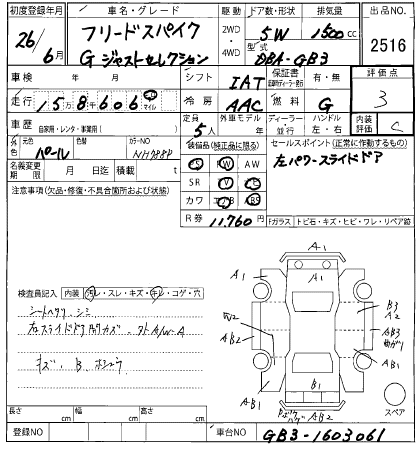 初度登録年月 車名・グレード 駆動 ドア数・形状 排気量 出品NO
26/6月 フリードスパイク 2WD 5W 1500cc 2516
G ジャストセレクション 4WD 型式 DBA-GB3
車検 年 月 シフト IAT 保証書 有・無 評価点
走行 15万8千606 km マイル 冷房 AAC 燃料 G 3
車歴 自家用・レンタ・事業用( ) 定員 5人 外車モデル 年 ディーラー・並行 ハンドル 左・右 内装評価 C
外色 元色 パール 色替 カラーNO NH788P 装備品(純正品に限る) セールスポイント(正常に作動するもの)
名義変更期限 月 日迄 積載 t PS PW AW 左パワースライドドア
注意事項(欠品・修復・不具合箇所および状態) SR
カワ
R券 11,760円 Fガラス トビ石・キズ・ヒビ・ワレ・リペア跡
A1
A1 A1
検査員記入 内装 汚レ・スレ・キズ・キレ・コゲ・穴 B3 A2
シートヘタリ シミ
AB2 AB3
AB1
キズ B
AB1 B1
AB2 スペア
長さ cm 幅 cm 高さ cm
登録NO 車台NO GB3-1603061